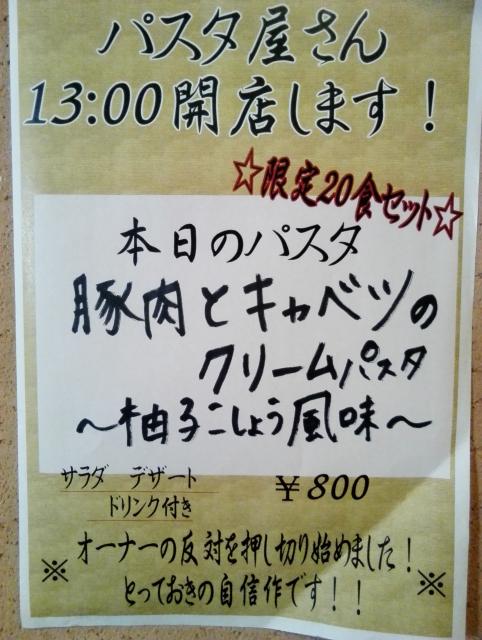 パスタ屋さん
13:00開店します!
☆限定20食セット☆
本日のパスタ
豚肉とキャベツの
クリームパスタ
～柚子こしょう風味～
サラダ デザート
ドリンク付き
¥800
※ オーナーの反対を押し切り始めました!
とっておきの自信作です!! ※